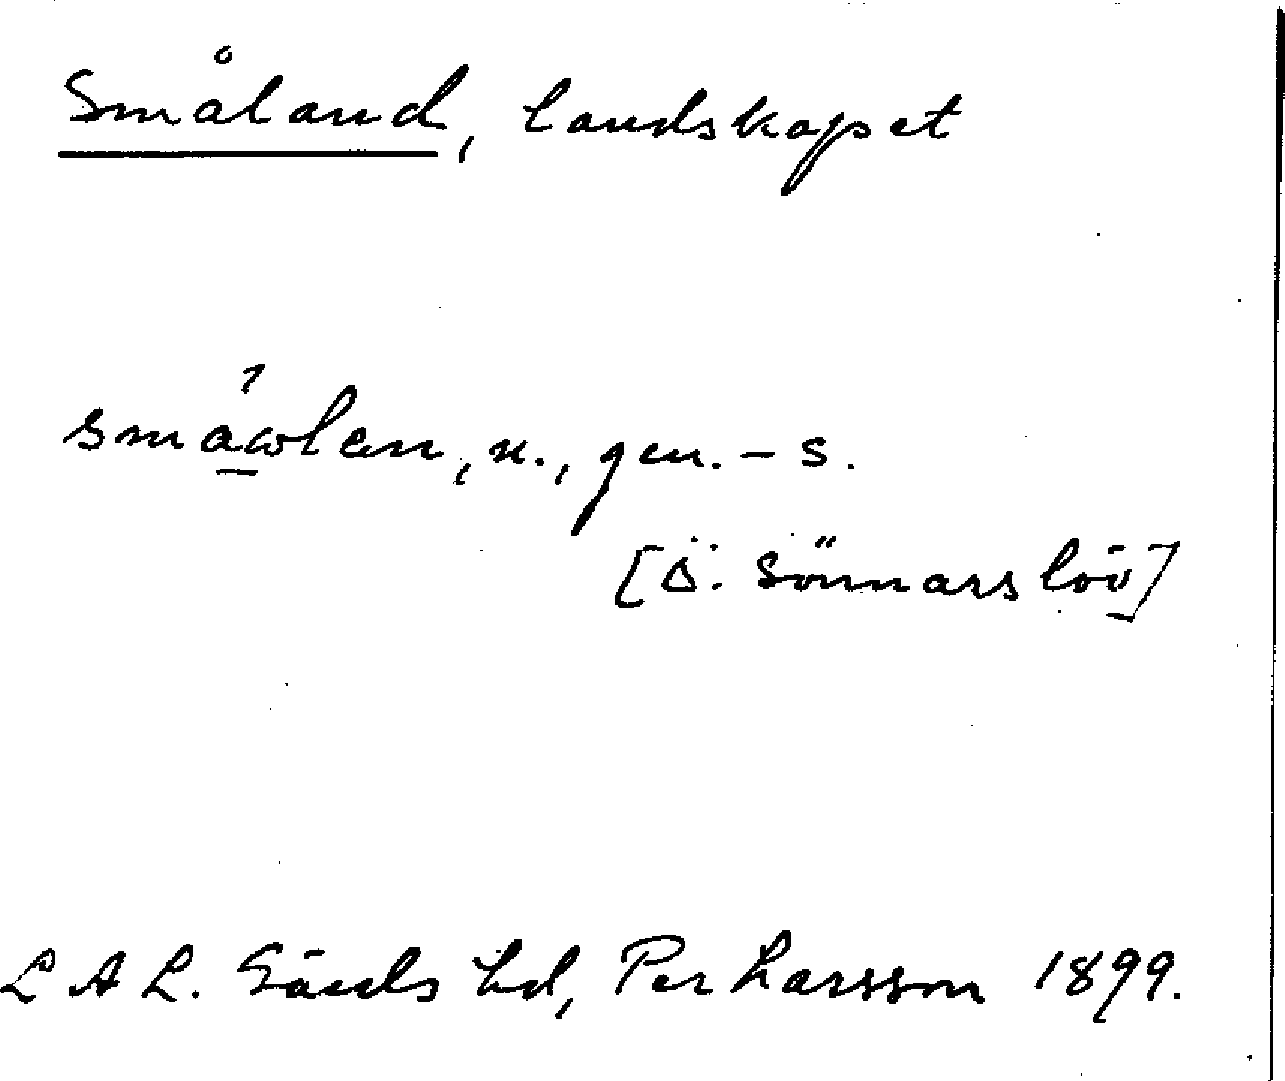 Småland, landskapet
smäwlan, n., gen. -s.
[Ö. Sönnarslöv]
L A L. Gärds hd, Per Larsson 1899.